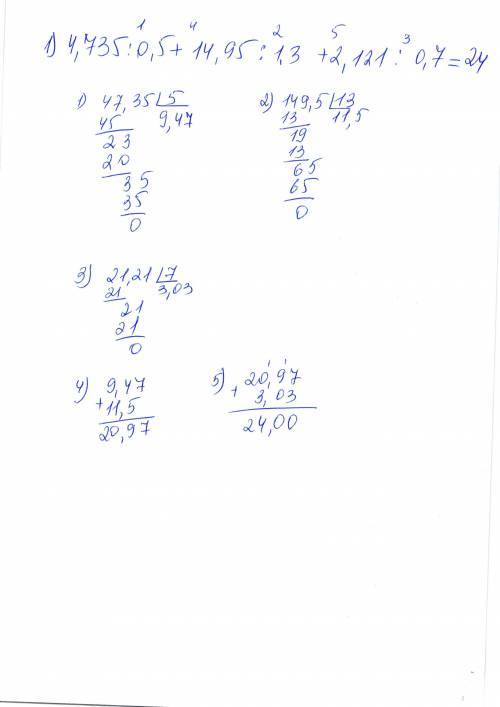 1 4 2 5 3
1) 4,735:0,5+14,95:1,3+2,121:0,7=24
1) 47,35 5 2) 149,5 13
45 9,47 13 11,5
23 19
20 13
35 65
35 65
0 0
3) 21,21 7
21 3,03
21
21
0
4) 9,47 5) 20,97
+11,5 + 3,03
20,97 24,00